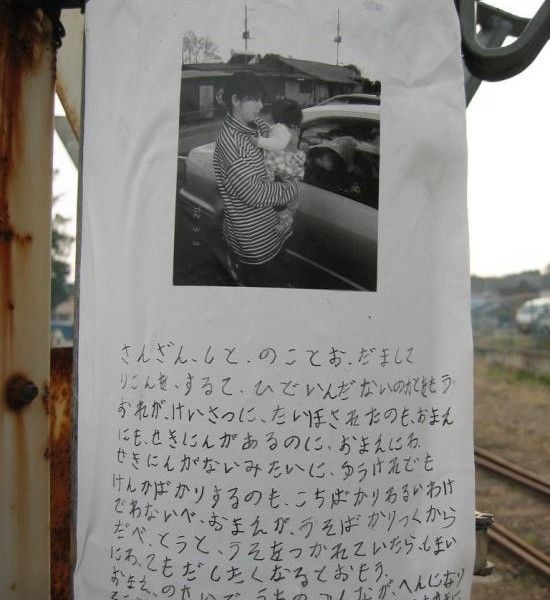 さんざん、しと、のことお、だまして
りこんを、するて、ひどいんだないのかともう
おれが、けいさつに、たいほされたのも、おまえ
にも、せきにんがあるのに、おまえにわ
せきにんがないみたいに、ゆうけれでも
けんかばかりするのも、こちばかりわるいわけ
でわないべ、おまえが、うそばかりつくから
だべ、とうと、うそをつかれていたら、しまい
にわ、てもだしたくなるとおもう、
おまえ、のせいで、うちの